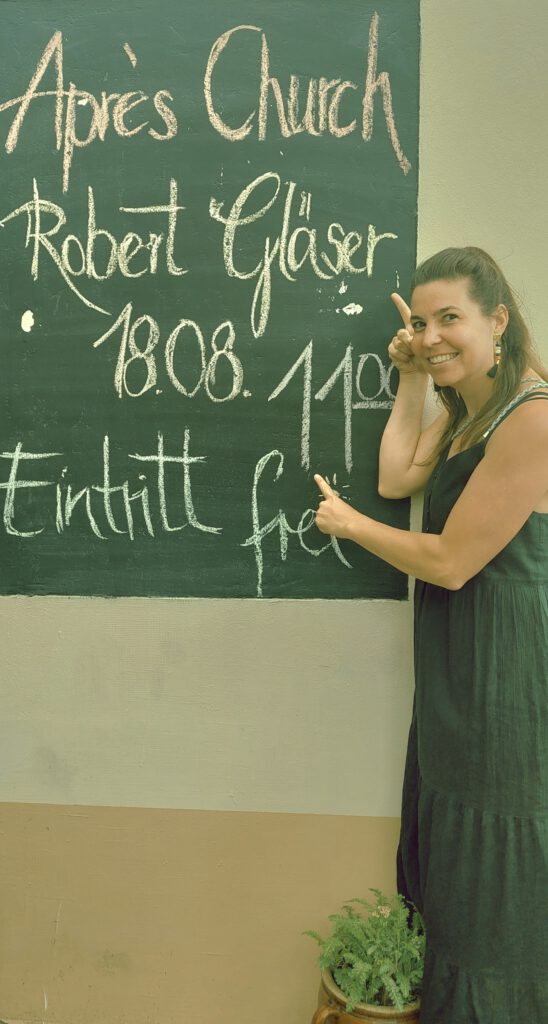 Après Church
Robert Gläser
18.08. 11⁰⁰
Eintritt frei